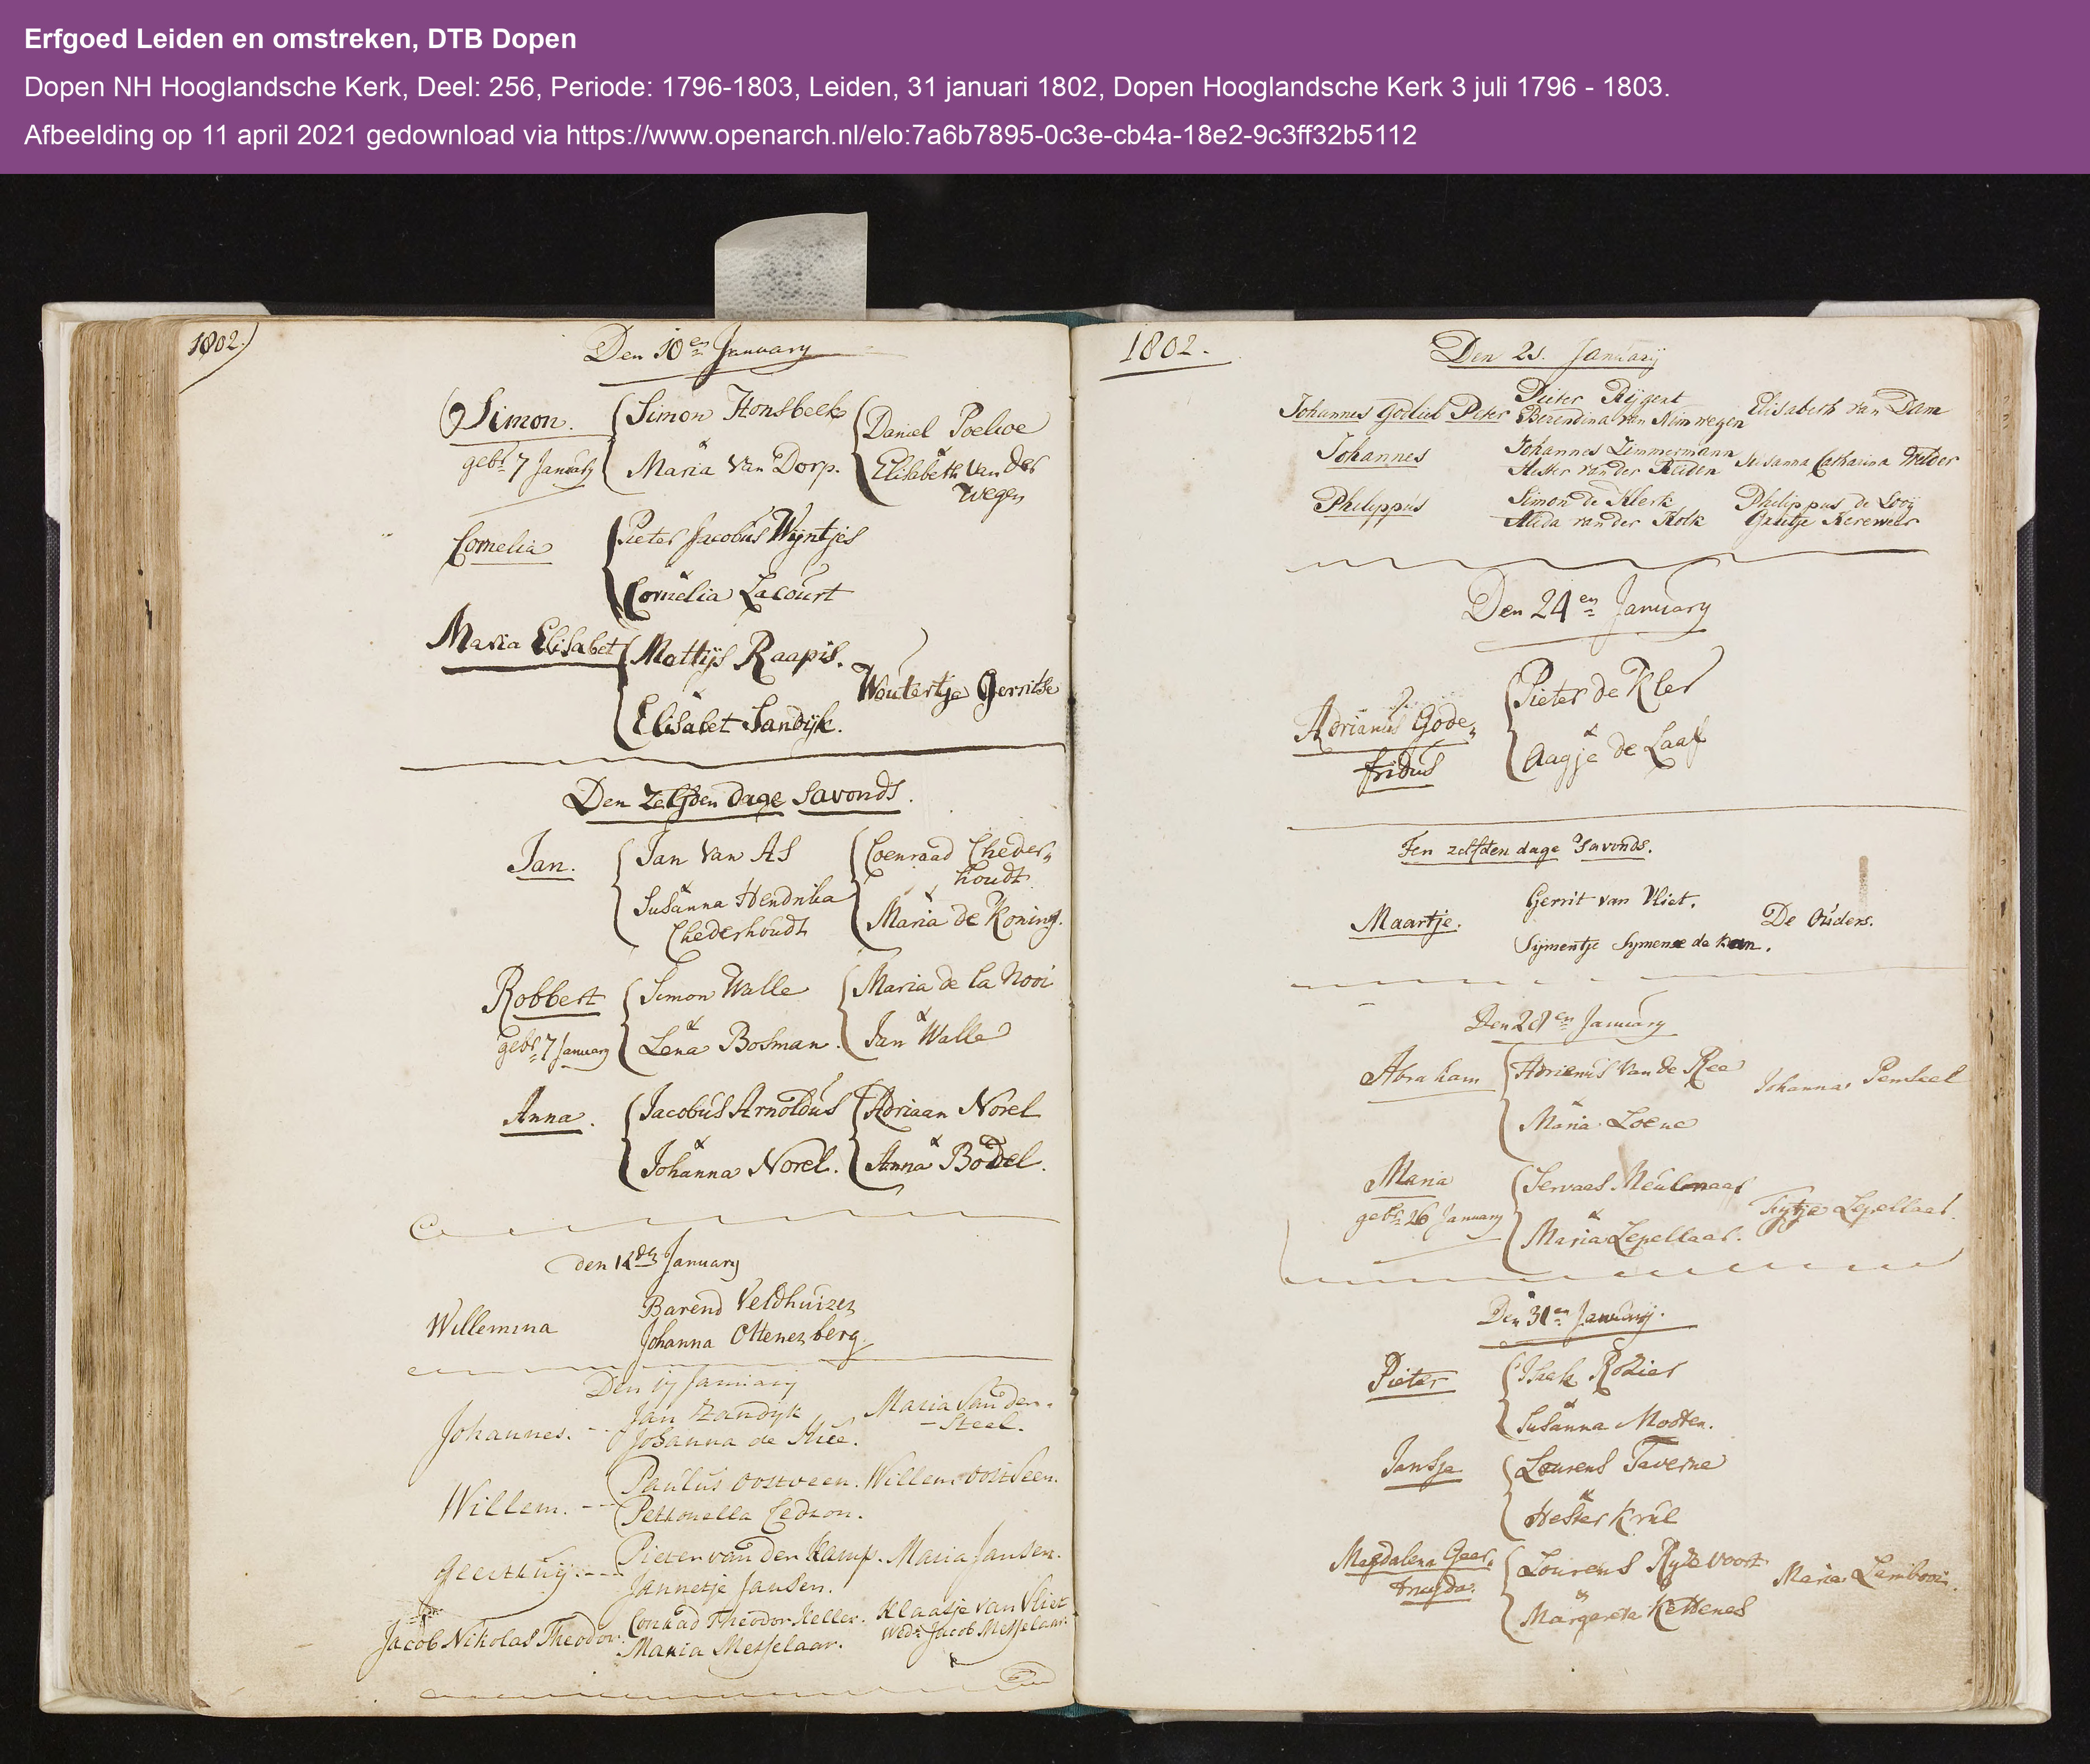 Erfgoed Leiden en omstreken, DTB Dopen
Dopen NH Hooglandsche Kerk, Deel: 256, Periode: 1796-1803, Leiden, 31 januari 1802, Dopen Hooglandsche Kerk 3 juli 1796 - 1803.
Afbeelding op 11 april 2021 gedownload via https://www.openarch.nl/elo:7a6b7895-0c3e-cb4a-18e2-9c3ff32b5112
1802.
Den 10en January
Simon. Simon Honsbeek Daniel Poelwe
gebr 7 January & Maria Van Dorp. & Elisabeth Van der
Wegen
Cornelia Pieter Jacobus Wijntjes
& Cornelia Lacourt
Maria Elisabet Mattijs Raapis. Woutertje Gerritse
& Elisabet Sandijk.
Den Zelfden dage Savonds.
Jan. Jan Van As Coenraad Cheder„
houdt
& Susanna Hendrika & Maria de Koning.
Chederhoudt
Robbert Simon Walle Maria de la Nooi
gebr 7 January & Lena Bosman. & Jan Walle
Anna. Jacobus Arnoldus Adriaan Norel
& Johanna Norel. & Anna Bodel.
den 14den January
Willemina Barend Veldhuizen
Johanna Ottenezberg
Den 17 January
Johannes. Jan Zandyk Maria Van den
Johanna de Hee. Steel.
Willem. Paulus oostveen. Willem oostveen.
Petronella
Pieter van den Kamp. Maria Jansen.
Jannetje Jansen.
Jacob Nikolas Theodor. Conrad Theodor Keller. Klaasje van Vliet
Maria Messelaar. wedr Jacob Messelaar.
1802.
Den 21. January
Johannes Godlieb Peter Pieter Rijgert Elisabeth van Dam
Berendina van Nimwegen
Johannes Johannes Zimmermann Susanna Catharina Velder
Hester van der Reiden
Philippus Simon de Klerk Philippus de Looij
Alida van der Kolk Grietje Kereweer
Den 24en January
Adrianus Gode„ Pieter de Kler
fridus & Aagje de Laaf
Den zelfden dage Savonds.
Maartje. Gerrit van Vliet. De Ouders.
Sijmentje Symense de
Den 28en January
Abraham Adrianus Van de Ree Johanna Penseel
& Maria Loene
Maria Servaas Meulenaar Fytje Lepellaar.
gebr 26 January & Maria Lepellaar.
Den 31en January.
Pieter Isack Rozier
& Susanna Mooten.
Jansje Lourens Taverne
& Hester Krul
Magdalena Geer„ Lourens Ryzevoort Maria Lembooi.
truyda. & Margareta Kettenes